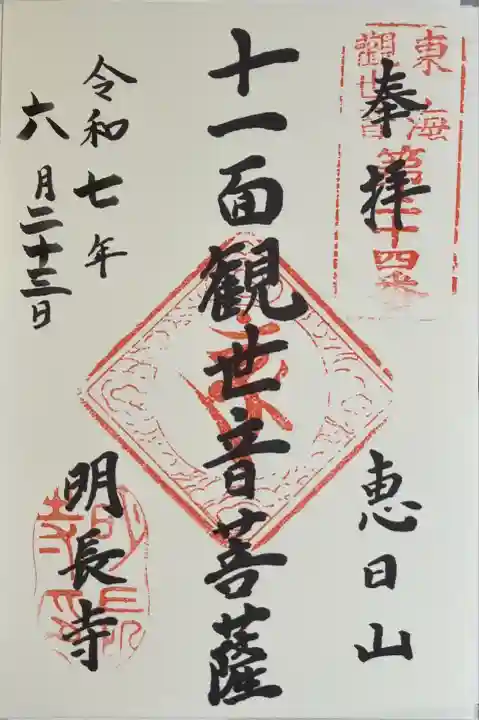 奉拝
東海
觀世音
第二十四番
恵日山
十一面観世音菩薩
令和七年
六月二十三日
明長寺